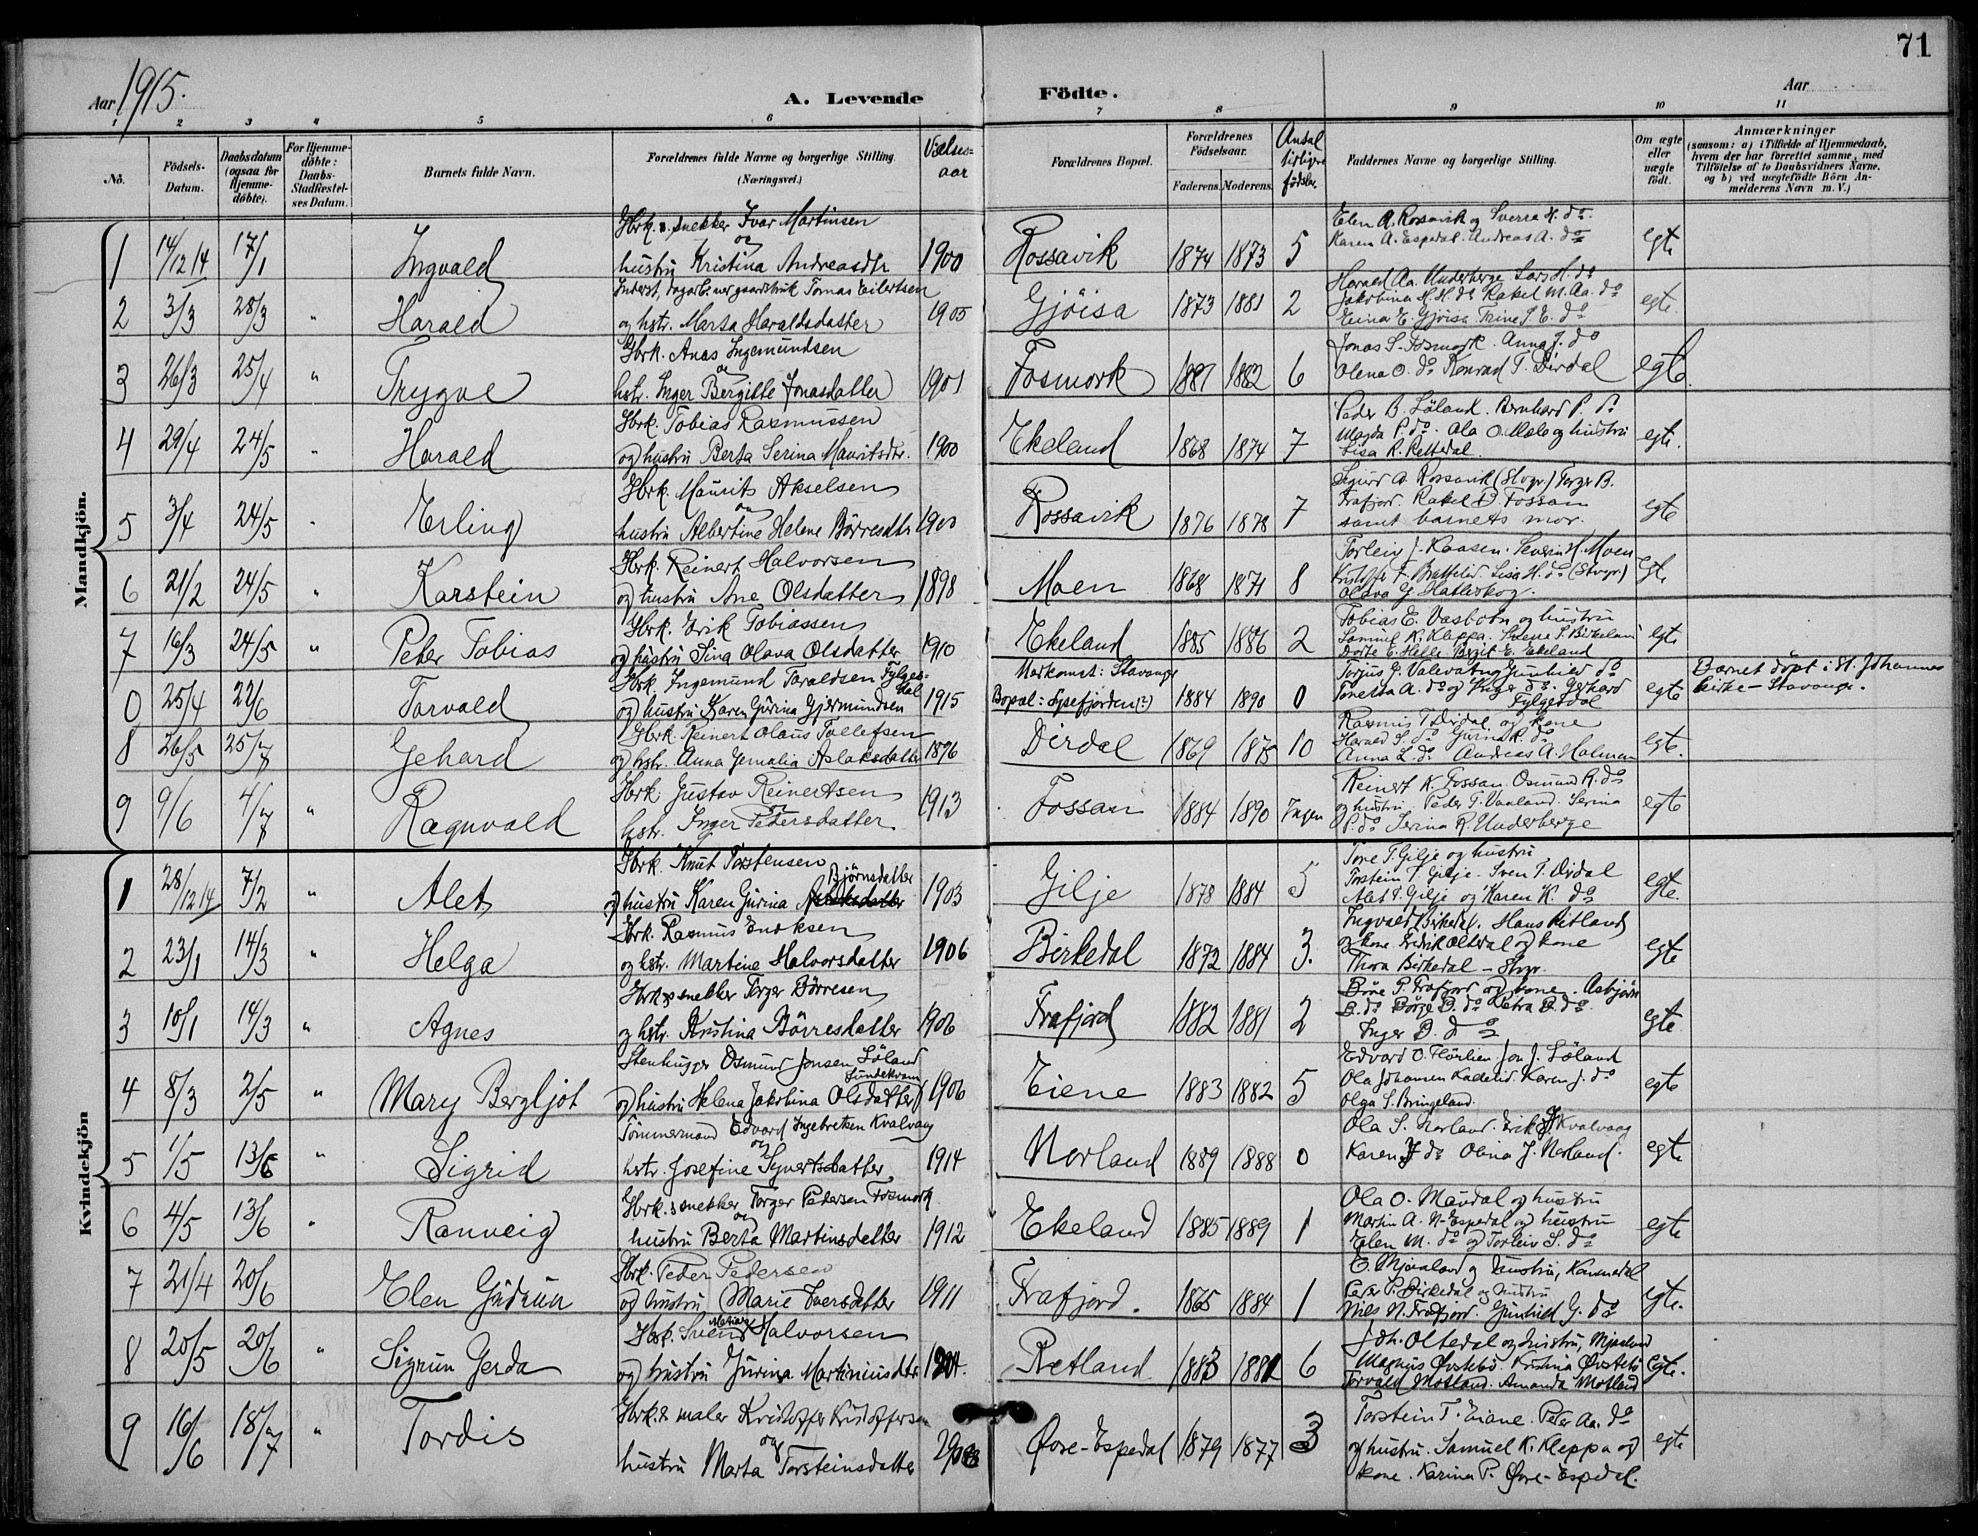 71
Aar 1915.
A. Levende Födte.
Aar
1 2 3 4 5 6 7 8 9 10 11
No.
Födsels-Datum.
Daabsdatum (ogsaa for Hjemme-döbte).
For Hjemme-döbte: Daabs-Stadfestel-ses Datum.
Barnets fulde Navn.
Forældrenes fulde Navne og borgerlige Stilling.
(Næringsvei.)
Vielses-aar
Forældrenes Bopæl.
Forældrenes Födselsaar.
Faderens. Moderens.
Antal tidligre födsler.
Faddernes Navne og borgerlige Stilling.
Om ægte eller uægte födt.
Anmærkninger
(saasom: a) i Tilfælde af Hjemmedaab, hvem der har forrettet samme, med Tilföielse af to Daabsvidners Navne, og b) ved uægtefödte Börn An-melderens Navn m. V.)
Mandkjön.
1 14/12 14 17/1 Ingvald
Gbrk. s. snekker Ivar Martinsen
og hustru Kristina Andreasdtr
1900 Rossavik 1874 1873 5
Elen A. Rossavik og Sverre H. do
Karen A. Espedal. Andreas A. do
egte
2 3/3 28/3 " Harald
Tomas Eilertsen
og hstr. Marta Haraldsdatter
1905 Gjöisa 1873 1881 2
Harald Aa. Underberge Lars H. do
Jakobina H. H. do Rakel M. Aa. do
Einar E. Gjöisa. Trine S. E. do
egte
3 26/3 25/4 " Trygve
Gbrk. Anas Ingemundsen
og hstr. Inger Bergitte Jonasdatter
1901 Fosmork 1881 1882 6
Jonas S. Fosmork. Anna J. do
Olena O. do Konrad T. Dirdal
egte
4 29/4 24/5 " Harald
Gbrk. Tobias Rasmussen
og hustru Berta Serina Mauritsdtr.
1900 Ekeland 1868 1874 7
Peder B. Löland. Bernhard P. do
Magda P. do. Ola O. Mæle og hustru
Lisa R. Rettedal.
egte.
5 3/4 24/5 " Erling
Gbrk. Maurits Akselsen
og hustru Albertine Helene Börresdtr
1900 Rossavik 1876 1878 7
Sigurd A. Rossavik (Stvgr) Torger B.
Frafjord Rakel D. Fossan
samt barnets mor.
egte
6 21/2 24/5 " Karstein
Gbrk. Reinert Halvorsen
og hustru Ane Olsdatter
1898 Moen 1868 1871 8
Torleiv J. Kaasen. Severin H. Moen
Kristoffer F. Brattelid. Lisa H. do (Stvgr)
Olava G. Hatleskog.
egte
7 16/3 24/5 " Peter Tobias
Gbrk. Erik Tobiassen
og hustru Sina Olava Olsdatter
1910 Ekeland 1885 1886 2
Tobias E. Vasbotn og hustru
Samuel K. Kleppa. Svene S. Birkeland
Dorte E. Helle. Bergit E. Ekeland
egte
0 25/4 22/6 Torvald
Gbrk. Ingemund Taraldsen Fylges-dal
og hustru Karen Gurina Gjermundsen
1915
Merkomst: Stavanger
Bopæl: Lysefjorden (?)
1884 1890 0
Torjus G. Valevatn og Gunhild do
Tonetta A. do og Inger do. Gerhard Fylgesdal
egte
Barnet döpt i St. Johannes kirke – Stavanger.
8 26/5 25/7 Gehard
Gbrk. Reinert Olaus Tollefsen
og hstr. Anna Jemalia Aslaksdatter
1896 Dirdal 1869 1875 10
Rasmus T. Dirdal og kone
Harald S. do Gurina R. do
Anna L. do Andreas A. Holmen
egte.
9 9/6 4/7 " Ragnvald
Gbrk Gustav Reinertsen
og hstr. Inger Pedersdatter.
1913 Fossan 1884 1890 Ingen
Reinert K. Fossan. Osmund R. do
og hustru. Peder T. Vaaland. Serina
P. do Serina R. Underberge
egte
Kvindekjön
1 28/12 14 7/2 " Alet
Gbrk. Knut Torstensen
og hustru Karen Gurina Björnsdatter
1903 Gilje 1878 1884 5
Tore T. Gilje og hustru
Torstein T. Gilje. Sven T. Dirdal
Alet T. Gilje og Karen K. do
egte.
2 23/1 14/3 " Helga
Gbrk. Rasmus Enoksen
og hstr. Martine Halvorsdatter
1906 Birkedal 1872 1884 3.
Ingvald Birkedal. Hans Retland
og kone Fredrik Oltedal og kone
Thora Birkedal – Stvgr.
egte
3 10/1 14/3 " Agnes
Gbrk. s. snekker Torger Börresen
og hstr. Kristina Börresdatter
1906 Frafjord 1882 1881 2
Böre P. Frafjord og kone. Asbjörn
B. do Börge B. do Petra B. do
Inger D. do
egte
4 8/3 2/5 " Mary Bergljot
Stenhugger Osmund Jonsen Löland
og hustru Helena Jakobina Olsdatter Sundekvam
1906 Eiene 1883 1882 5
Edvard O. Flörlien Jon J. Löland
Ola Johansen Kallelid. Karen J. do
Olga S. Bringeland.
egte
5 1/5 13/6 " Sigrid
Tömmermand Edvard Ingebretsen Kvalvaag
og hstr. Josefine Syvertsdatter
1914 Norland 1889 1888 0
Ola S. Norland. Erik J. Kvalvaag
Karen J. do Olina J. Norland.
egte
6 4/5 13/6 " Ranveig
Gbrk. s snekker Torger Pedersen Fosmork
og hustru Berta Martinsdatter
1912 Ekeland 1885 1889 1
Ola O. Maudal og hustru
Martin A. N-Espedal og hustru
Elen M. do og Torleiv S. do
egte
7 21/4 20/6 Elen Gudrun
Gbrk. Peder Pedersen
og hustru Marie Iversdatter
1911 Frafjord. 1865 1884 1
E. Mjaaland og hustru, Kommedal
Peder P. Birkedal og hustru
Nils N. Frafjord. Gunhild G. do
egte.
8 20/5 20/6 " Sigrun Gerda
Gbrk. Svend Matias Halvorsen
og hustru Gurina Martiniusdtr
1904. Retland 1883 1881 6
Joh. Oltedal og hustru, Mjaaland
Magnus Övstebö. Kristina Övstebö
Torvald Motland. Amanda Motland
egte.
9 16/6 18/7 " Tordis
Gbrk. & maler Kristoffer Kristoffersen
og hustru Marta Torsteinsdatter
Övre-Espedal 1879 1877 3
Torstein T. Eiane. Peter Aa. do
og hustru. Samuel K. Kleppa og
kone. Karina P. Övre-Espedal.
egte